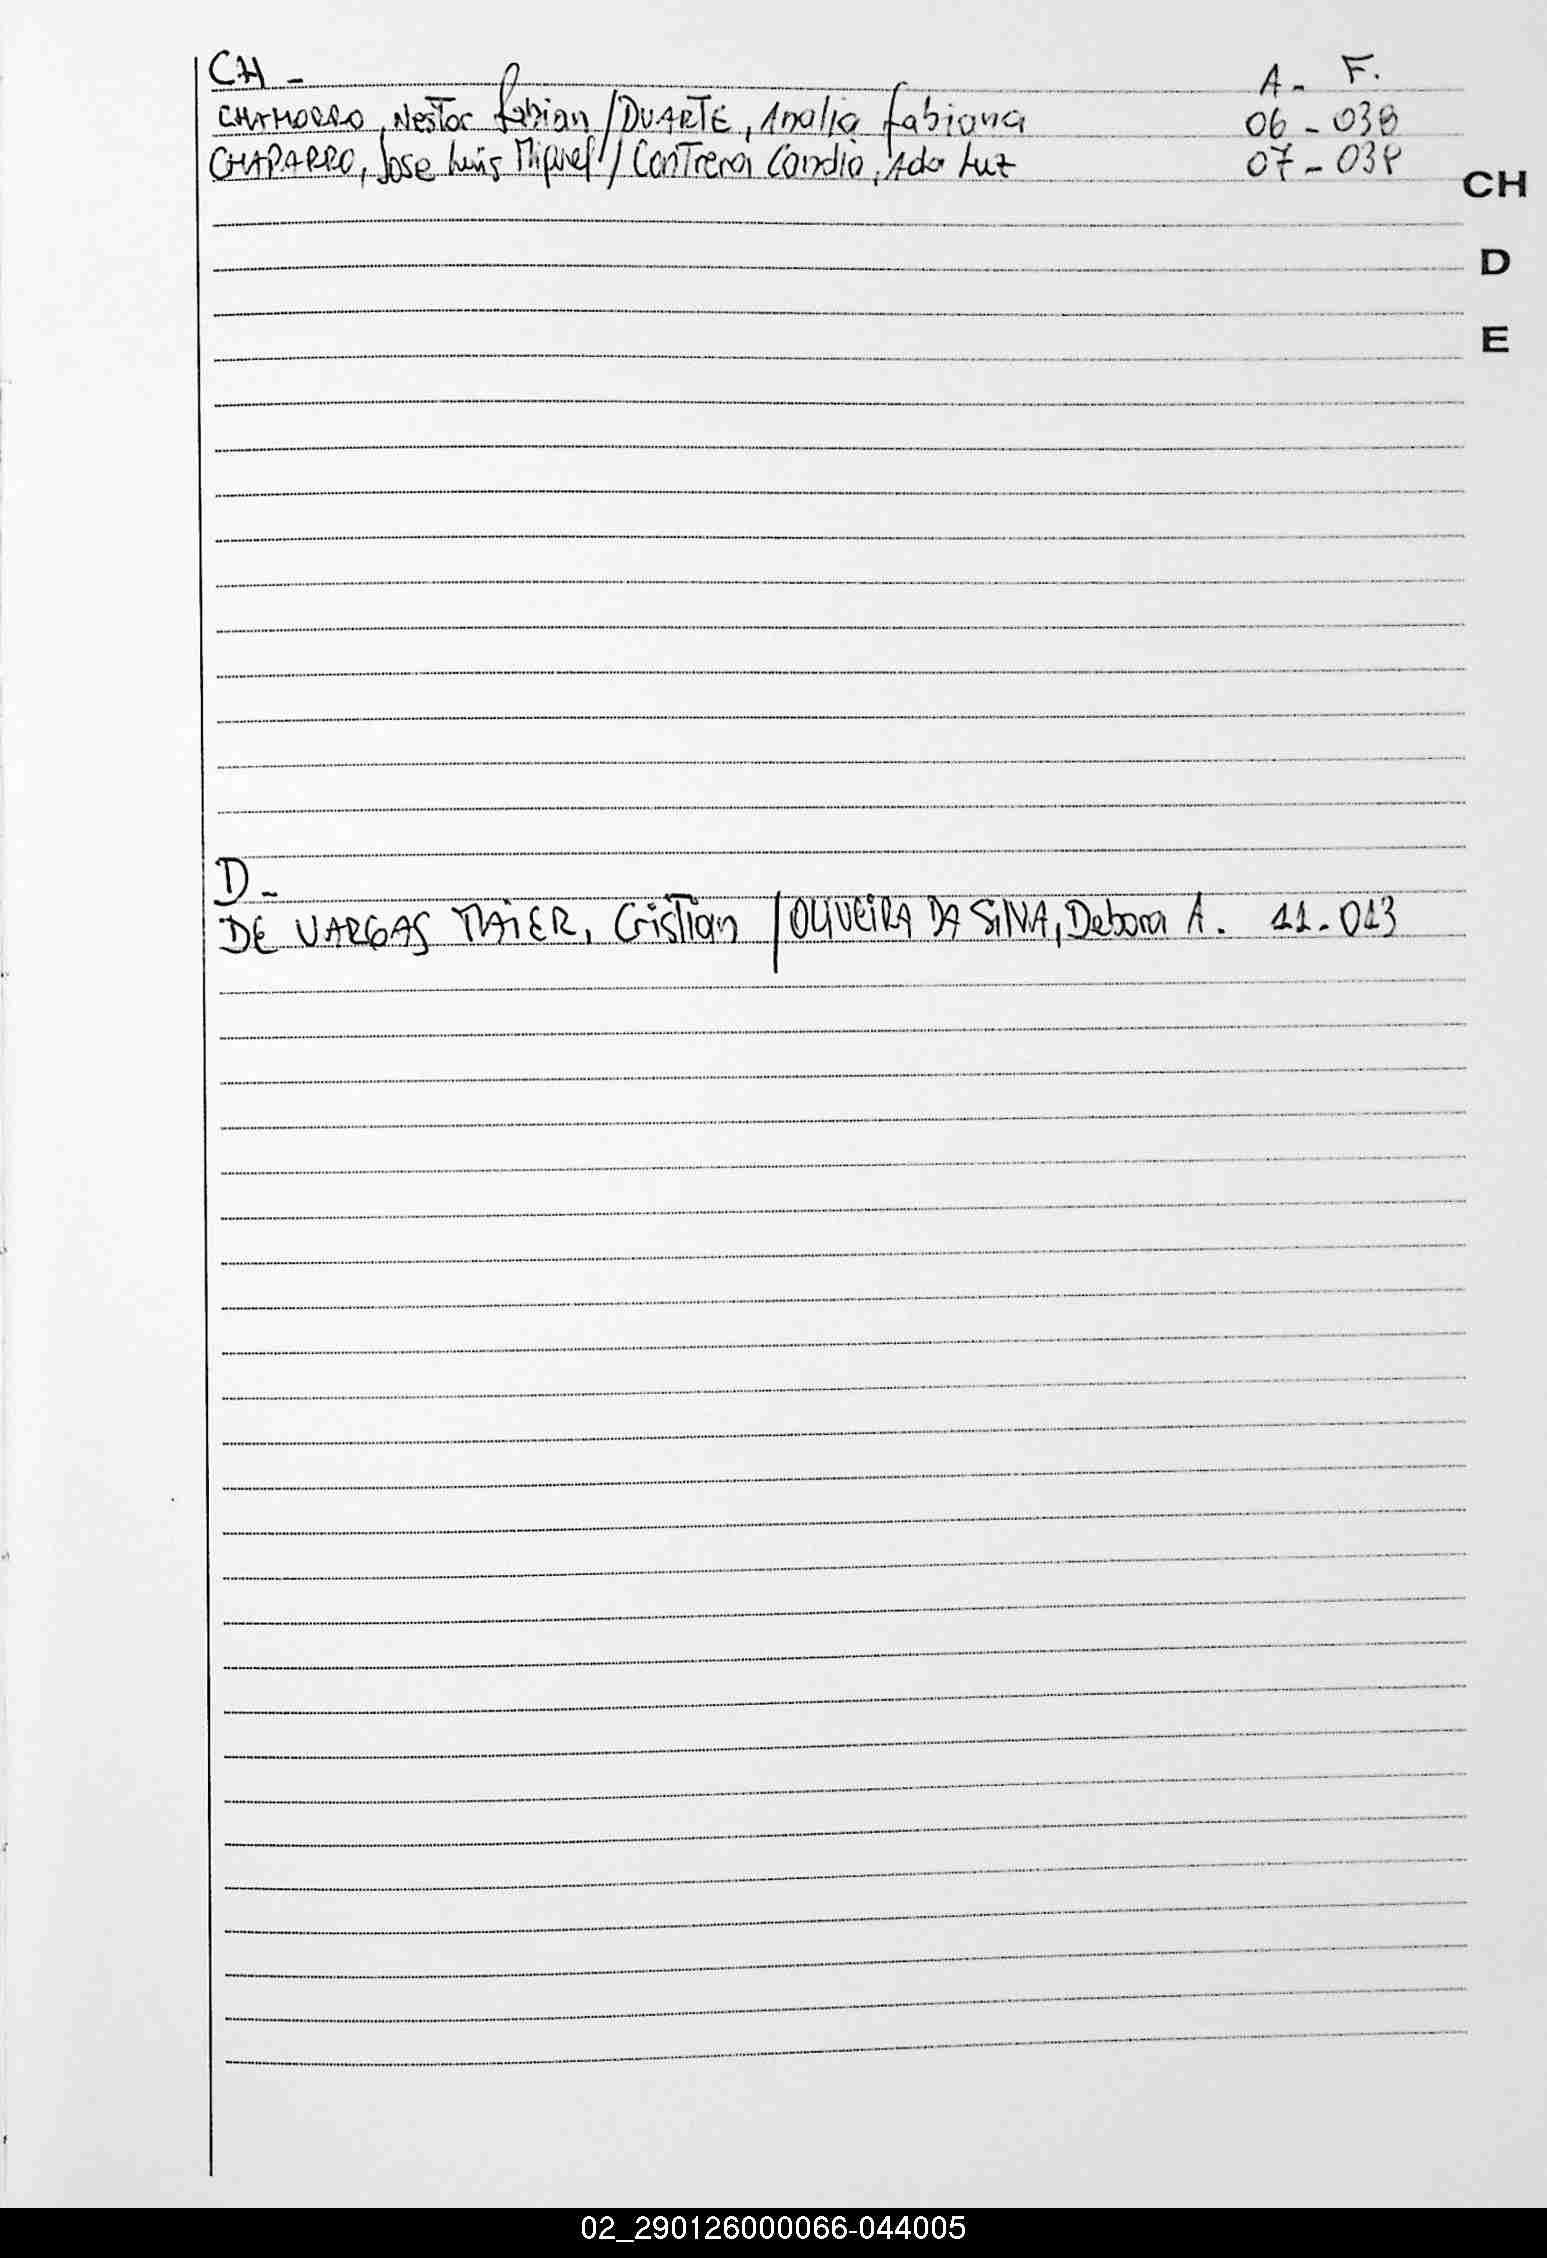 CH - A - F.
CHAMORRO, Nestor Fabian / DUARTE, Analia Fabiana 06 - 038
CHAPARRO, Jose Luis Miguel / Contrera Candia, Ada Luz 07 - 038
CH
D
E
D -
DE VARGAS MAIER, Cristian / OLIVEIRA DA SILVA, Debora A. 11 - 013
02_290126000066-044005